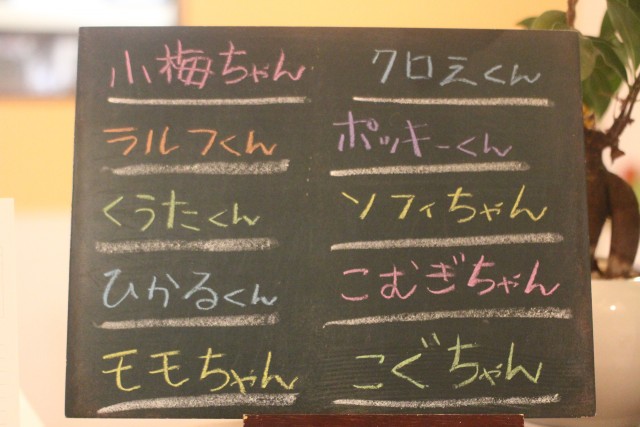 小梅ちゃん
ラルフくん
くうたくん
ひかるくん
モモちゃん
クロえくん
ポッキーくん
ソフィちゃん
こむぎちゃん
こぐちゃん